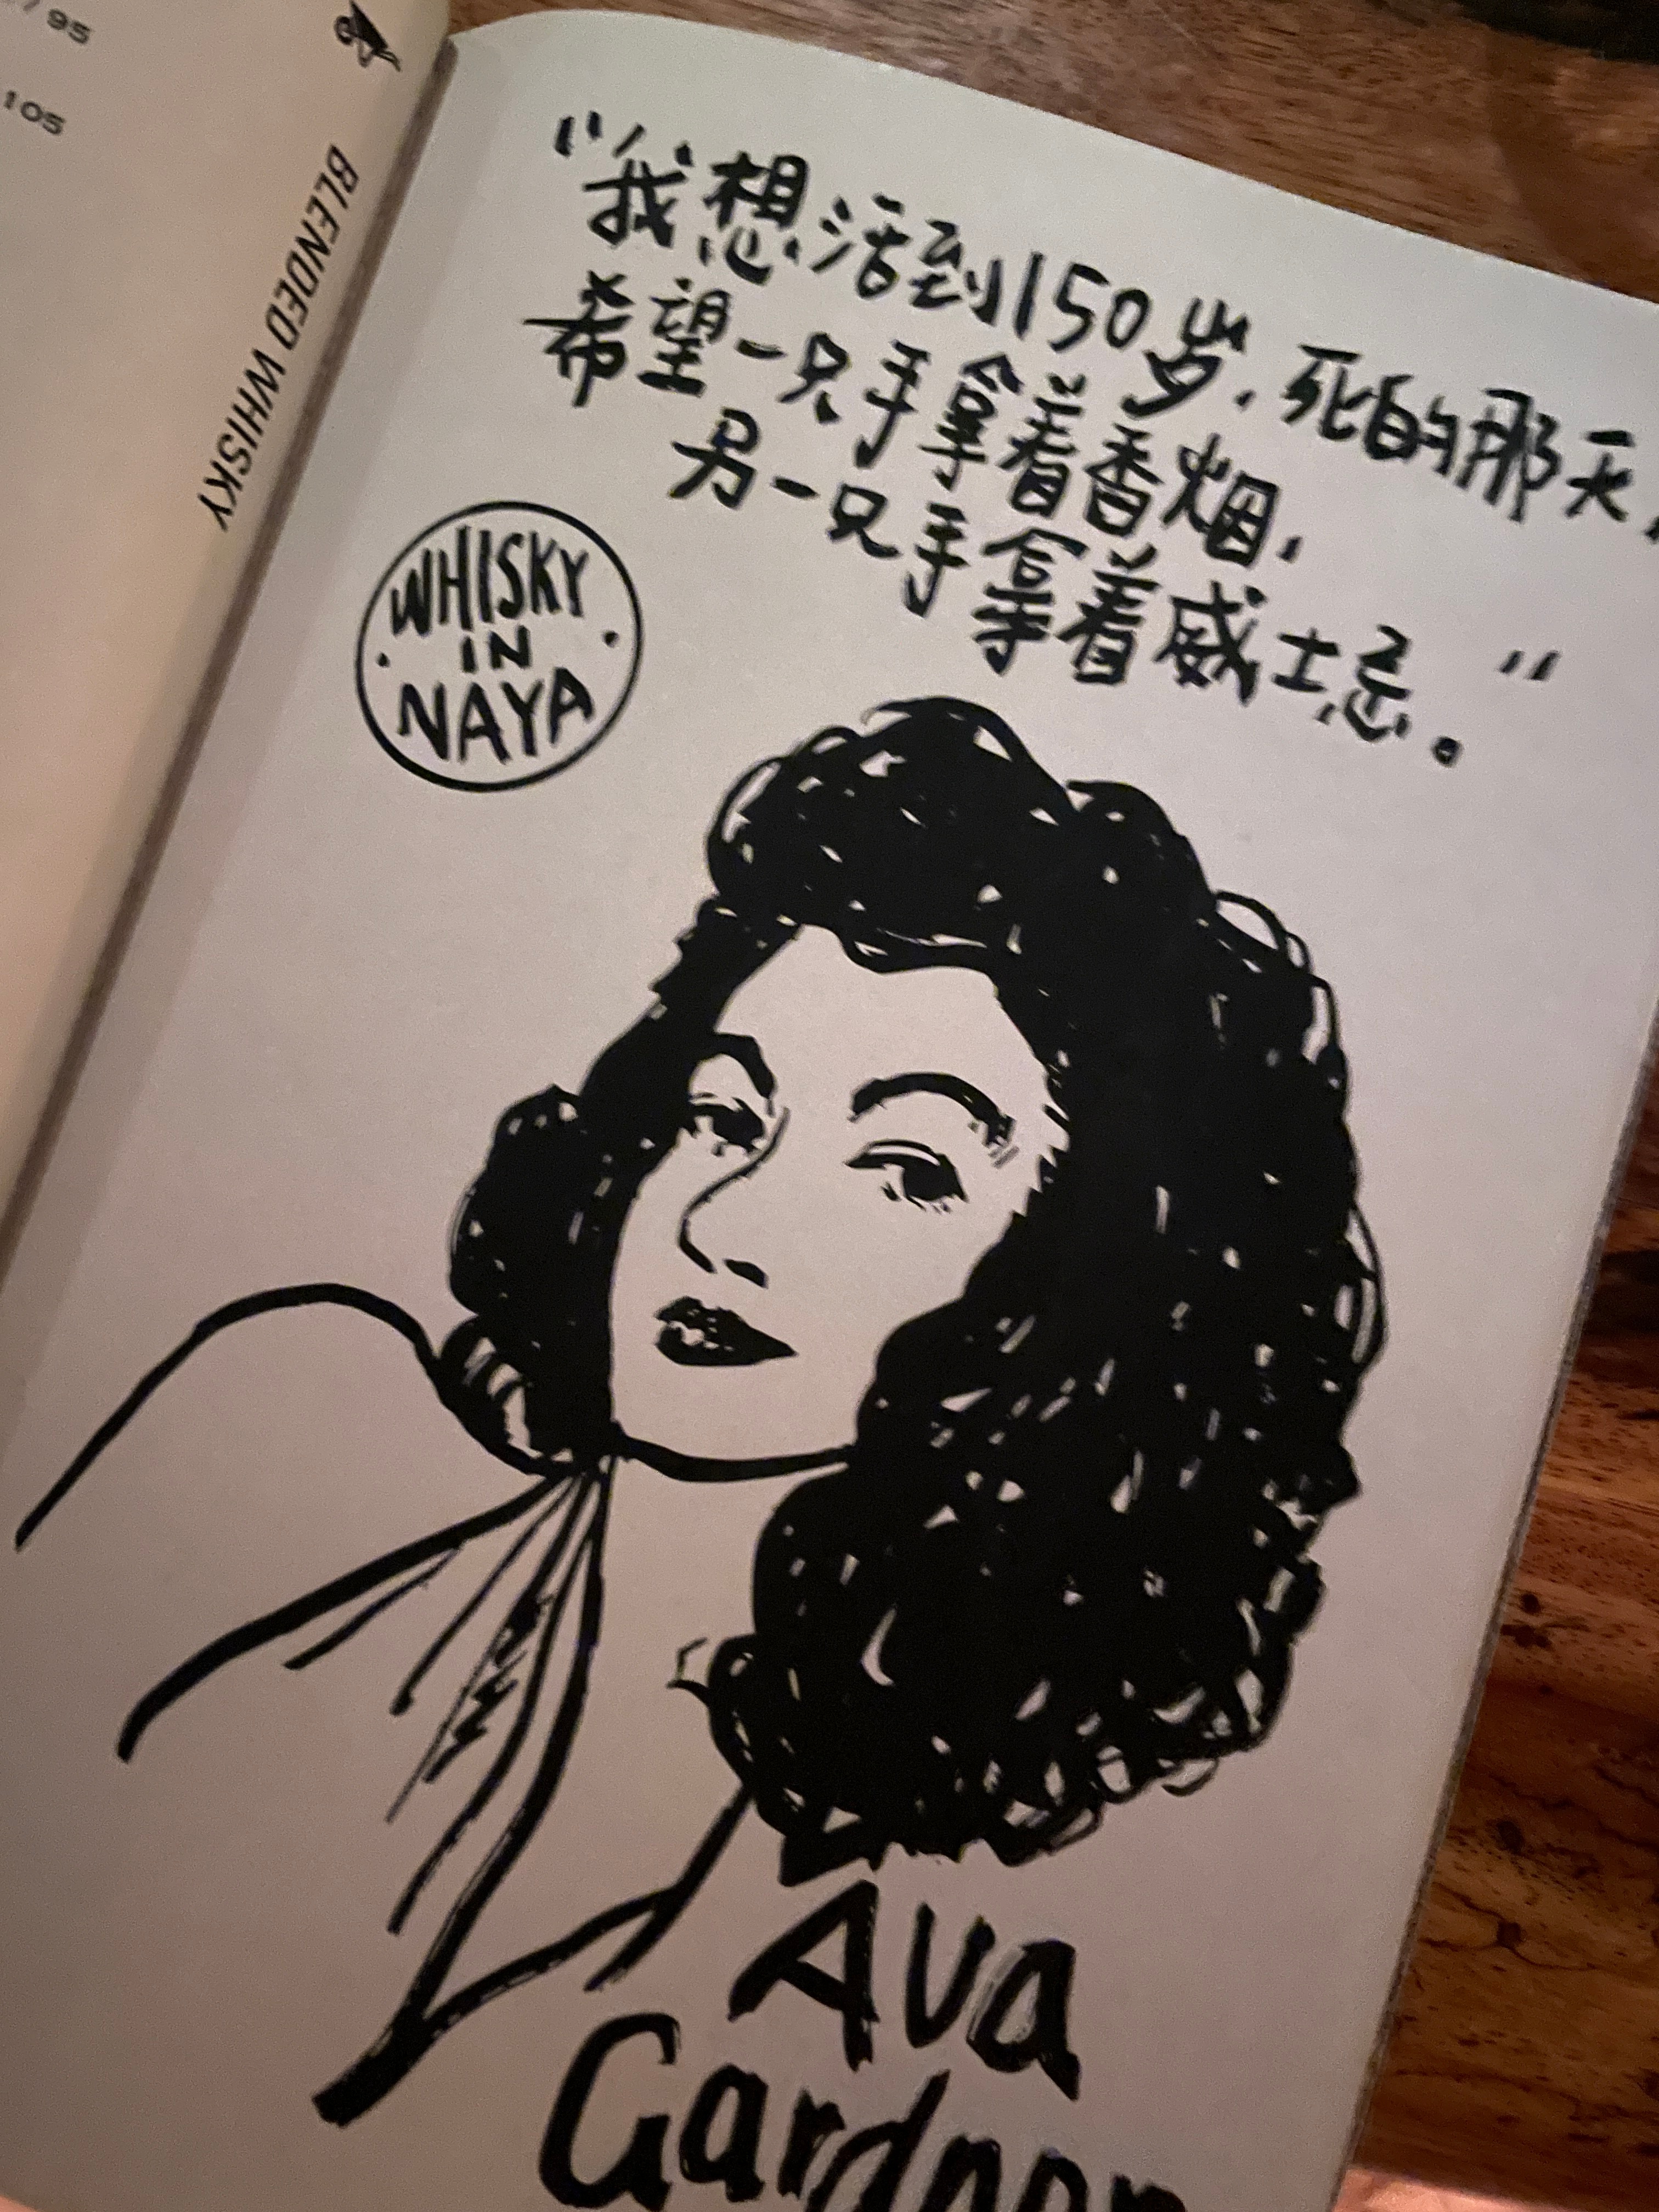 95
105
BLENDED WHISKY
“我想活到150岁.死的那天,
希望一只手拿着香烟,
另一只手拿着威士忌。”
WHISKY
IN
NAYA
Ava
Gardner